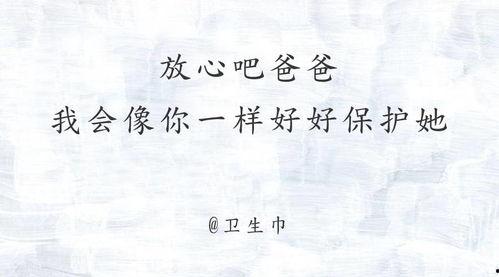 放心吧爸爸
我会像你一样好好保护她
@卫生巾